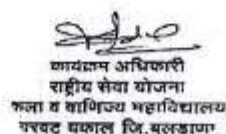 कार्यक्रम अधिकारी
राष्ट्रीय सेवा योजना
कला व वाणिज्य महाविद्यालय
जि.बुलडाणा